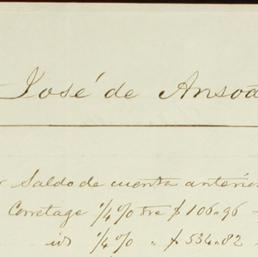 José de Ansoa
Saldo de cuenta anterior
Corretage ¼% sre $ 106.96
id ¼% " $ 534.82